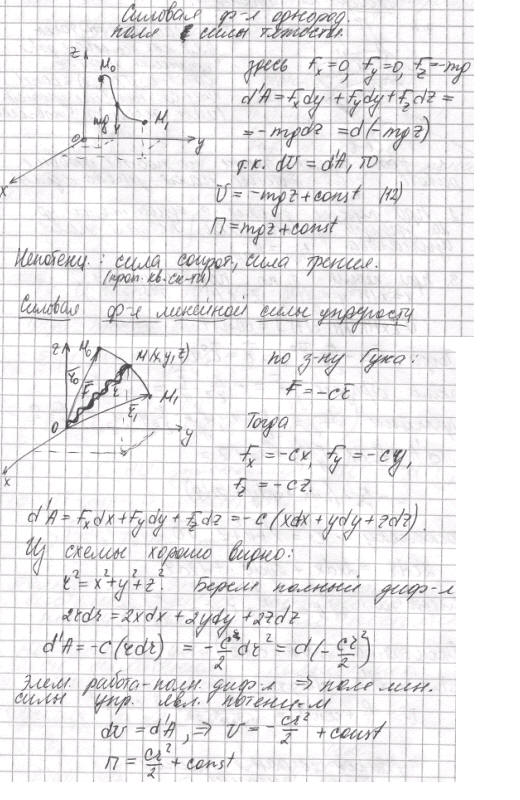 Силовая ф-я однород.
поля силы тяжести.
z
M₀
mg
M₁
0
y
x
здесь Fx=0, Fy=0, Fz=-mg
d'A=Fxdy+Fydy+Fzdz=
=-mgdz =d(-mgz)
т.к. dU=d'A, то
U=-mgz+const (12)
П=mgz+const
Непотенц.: сила сопрот., сила трения.
(проп. кв. ск-ти)
Силовая ф-я линейной силы упругости
z
M₀
M(x,y,z)
r̄₀
F̄
r̄
M₁
r̄₁
0
y
x
по з-ну Гука:
F̄=-cr̄
Тогда
Fx=-cx, Fy=-cy,
Fz=-cz.
d'A=Fxdx+Fydy+Fzdz=-c(xdx+ydy+zdz).
Из схемы хорошо видно:
r²=x²+y²+z². Берем полный диф-л
2rdr=2xdx+2ydy+2zdz
d'A=-c(rdr) =-c/2 dr²=d(-cr²/2)
Элем. работа-полн. диф-л ⇒ поле лин.
силы упр. явл. потенц-м
dU=d'A, ⇒ U=-cr²/2+const
П=cr²/2+const